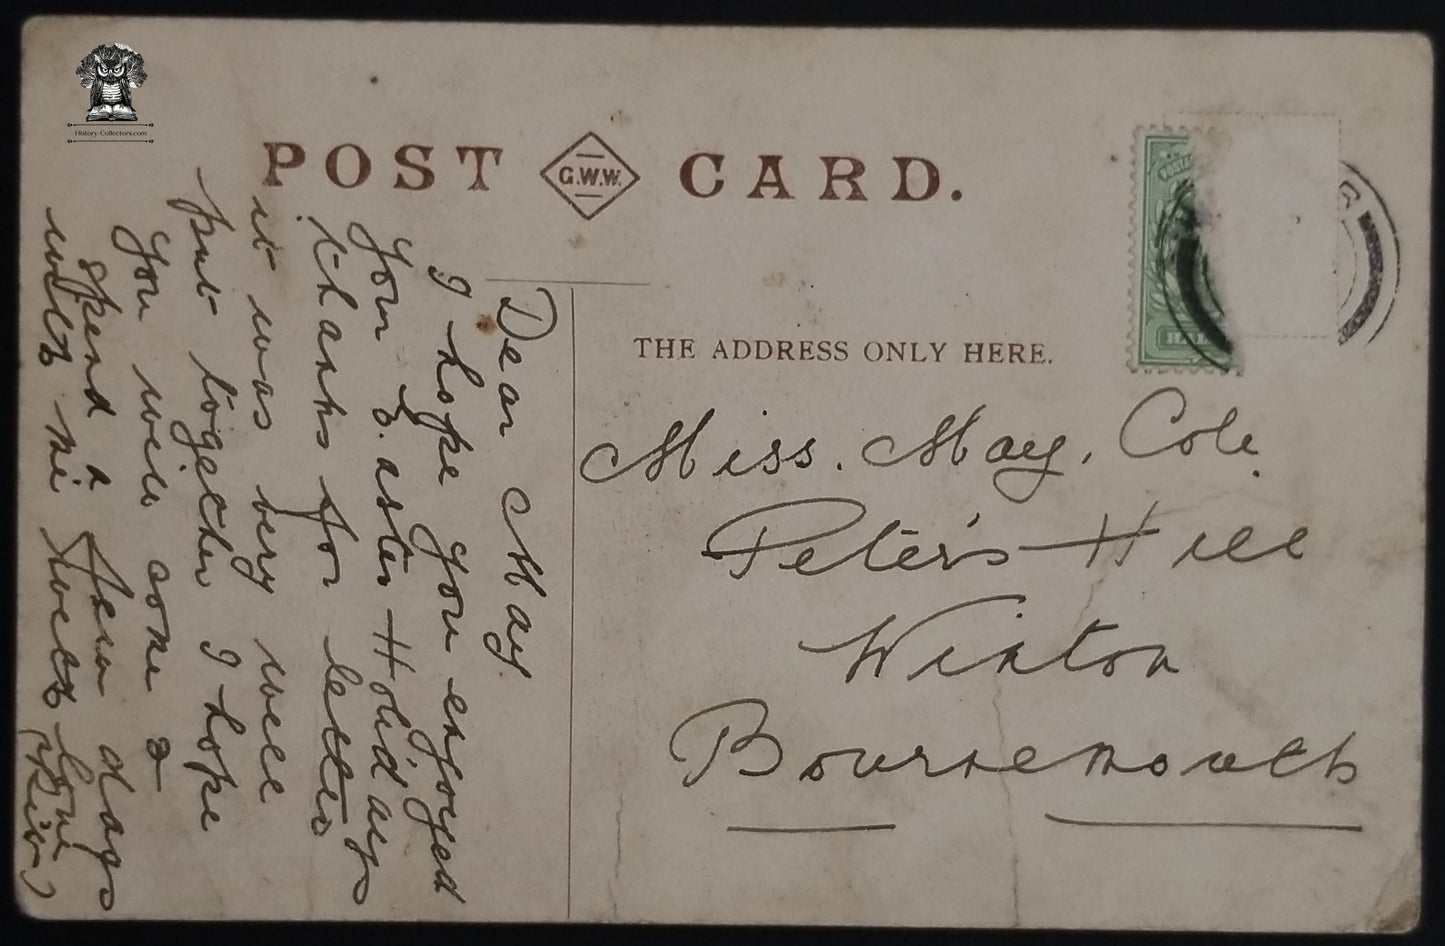 History-Collectors.com
POST G.W.W. CARD.
POSTA
HAL
G
THE ADDRESS ONLY HERE.
Miss. May, Cole.
Peter's Hill
Winton
Bournemouth
Dear May
I hope you enjoyed
your Easter Holidays
thanks for letter
it was very well
put together I hope
you will come &
spend a few days
with me fondest love